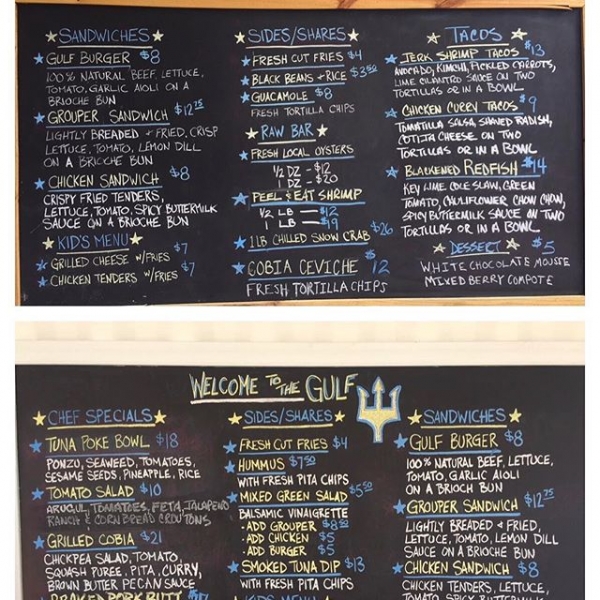 ★ SANDWICHES ★
★ GULF BURGER $8
100% NATURAL BEEF, LETTUCE,
TOMATO, GARLIC AIOLI ON A
BRIOCHE BUN
★ GROUPER SANDWICH $12.75
LIGHTLY BREADED + FRIED, CRISP
LETTUCE, TOMATO, LEMON DILL
ON A BRIOCHE BUN
★ CHICKEN SANDWICH $8
CRISPY FRIED TENDERS,
LETTUCE, TOMATO, SPICY BUTTERMILK
SAUCE ON A BRIOCHE BUN
★ KID'S MENU ★
★ GRILLED CHEESE W/FRIES $7
★ CHICKEN TENDERS W/FRIES $7
★ SIDES/SHARES ★
★ FRESH CUT FRIES $4
★ BLACK BEANS + RICE $3.50
★ GUACAMOLE $8
FRESH TORTILLA CHIPS
★ RAW BAR ★
★ FRESH LOCAL OYSTERS
1/2 DZ - $12
1 DZ - $20
★ PEEL & EAT SHRIMP
1/2 LB - $12
1 LB - $19
★ 1 LB CHILLED SNOW CRAB $26
★ COBIA CEVICHE $12
FRESH TORTILLA CHIPS
★ TACOS ★
★ JERK SHRIMP TACOS $13
AVOCADO, KIMCHI, PICKLED CARROTS,
LIME CILANTRO SAUCE ON TWO
TORTILLAS OR IN A BOWL
★ CHICKEN CURRY TACOS $9
TOMATILLA SALSA, SHAVED RADISH,
COTIJA CHEESE ON TWO
TORTILLAS OR IN A BOWL
★ BLACKENED REDFISH $14
KEY LIME COLE SLAW, GREEN
TOMATO, CAULIFLOWER CHOW CHOW,
SPICY BUTTERMILK SAUCE ON TWO
TORTILLAS OR IN A BOWL
★ DESSERT ★ $5
WHITE CHOCOLATE MOUSSE
MIXED BERRY COMPOTE
WELCOME TO THE GULF
★ CHEF SPECIALS ★
★ TUNA POKE BOWL $18
PONZU, SEAWEED, TOMATOES,
SESAME SEEDS, PINEAPPLE, RICE
★ TOMATO SALAD $10
ARUGUL, TOMATOES, FETA, JALAPENO
RANCH & CORNBREAD CROUTONS
★ GRILLED COBIA $21
CHICKPEA SALAD, TOMATO,
SQUASH PUREE, PITA, CURRY,
BROWN BUTTER PECAN SAUCE
PORK BUTT
★ SIDES/SHARES ★
★ FRESH CUT FRIES $4
★ HUMMUS $7.50
WITH FRESH PITA CHIPS
★ MIXED GREEN SALAD $5.50
BALSAMIC VINAIGRETTE
- ADD GROUPER $8.50
- ADD CHICKEN $5
- ADD BURGER $5
★ SMOKED TUNA DIP $13
WITH FRESH PITA CHIPS
KIDS MENU
★ SANDWICHES ★
★ GULF BURGER $8
100% NATURAL BEEF, LETTUCE,
TOMATO, GARLIC AIOLI
ON A BRIOCH BUN
★ GROUPER SANDWICH $12.75
LIGHTLY BREADED + FRIED,
LETTUCE, TOMATO, LEMON DILL
SAUCE ON A BRIOCHE BUN
★ CHICKEN SANDWICH $8
CHICKEN TENDERS, LETTUCE,
TOMATO, SPICY BUTTERMILK